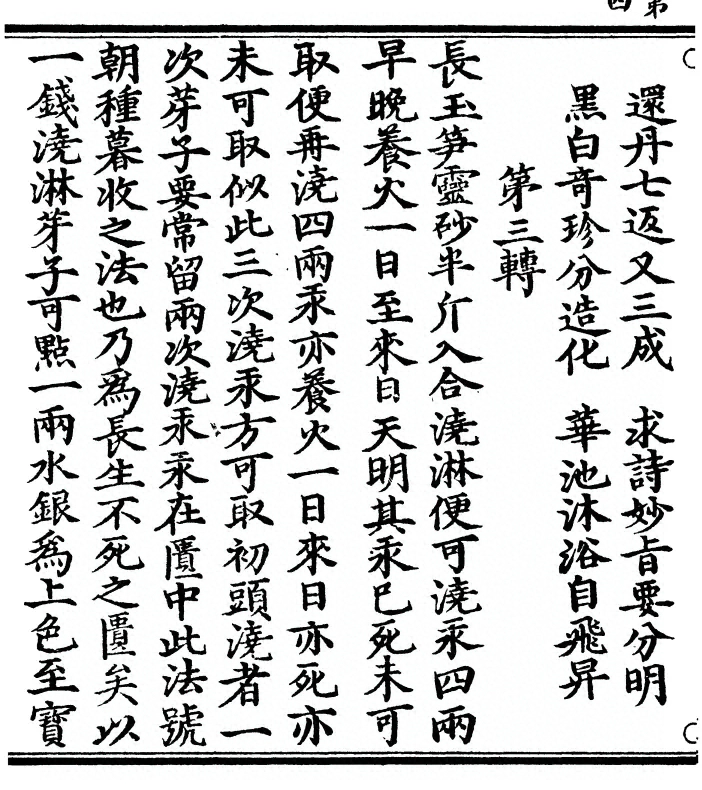 第
四
還丹七返又三成　求詩妙旨要分明
黑白奇珍分造化　華池沐浴自飛昇
第三轉
長玉笋靈砂半斤入合澆淋便可澆汞四兩
早晚養火一日至來日天明其汞已死未可
取便再澆四兩汞亦養火一日來日亦死亦
未可取似此三次澆汞方可取初頭澆者一
次芽子要常留兩次澆汞汞在匱中此法號
朝種暮收之法也乃爲長生不死之匱矣以
一錢澆淋芽子可點一兩水銀爲上色至寶